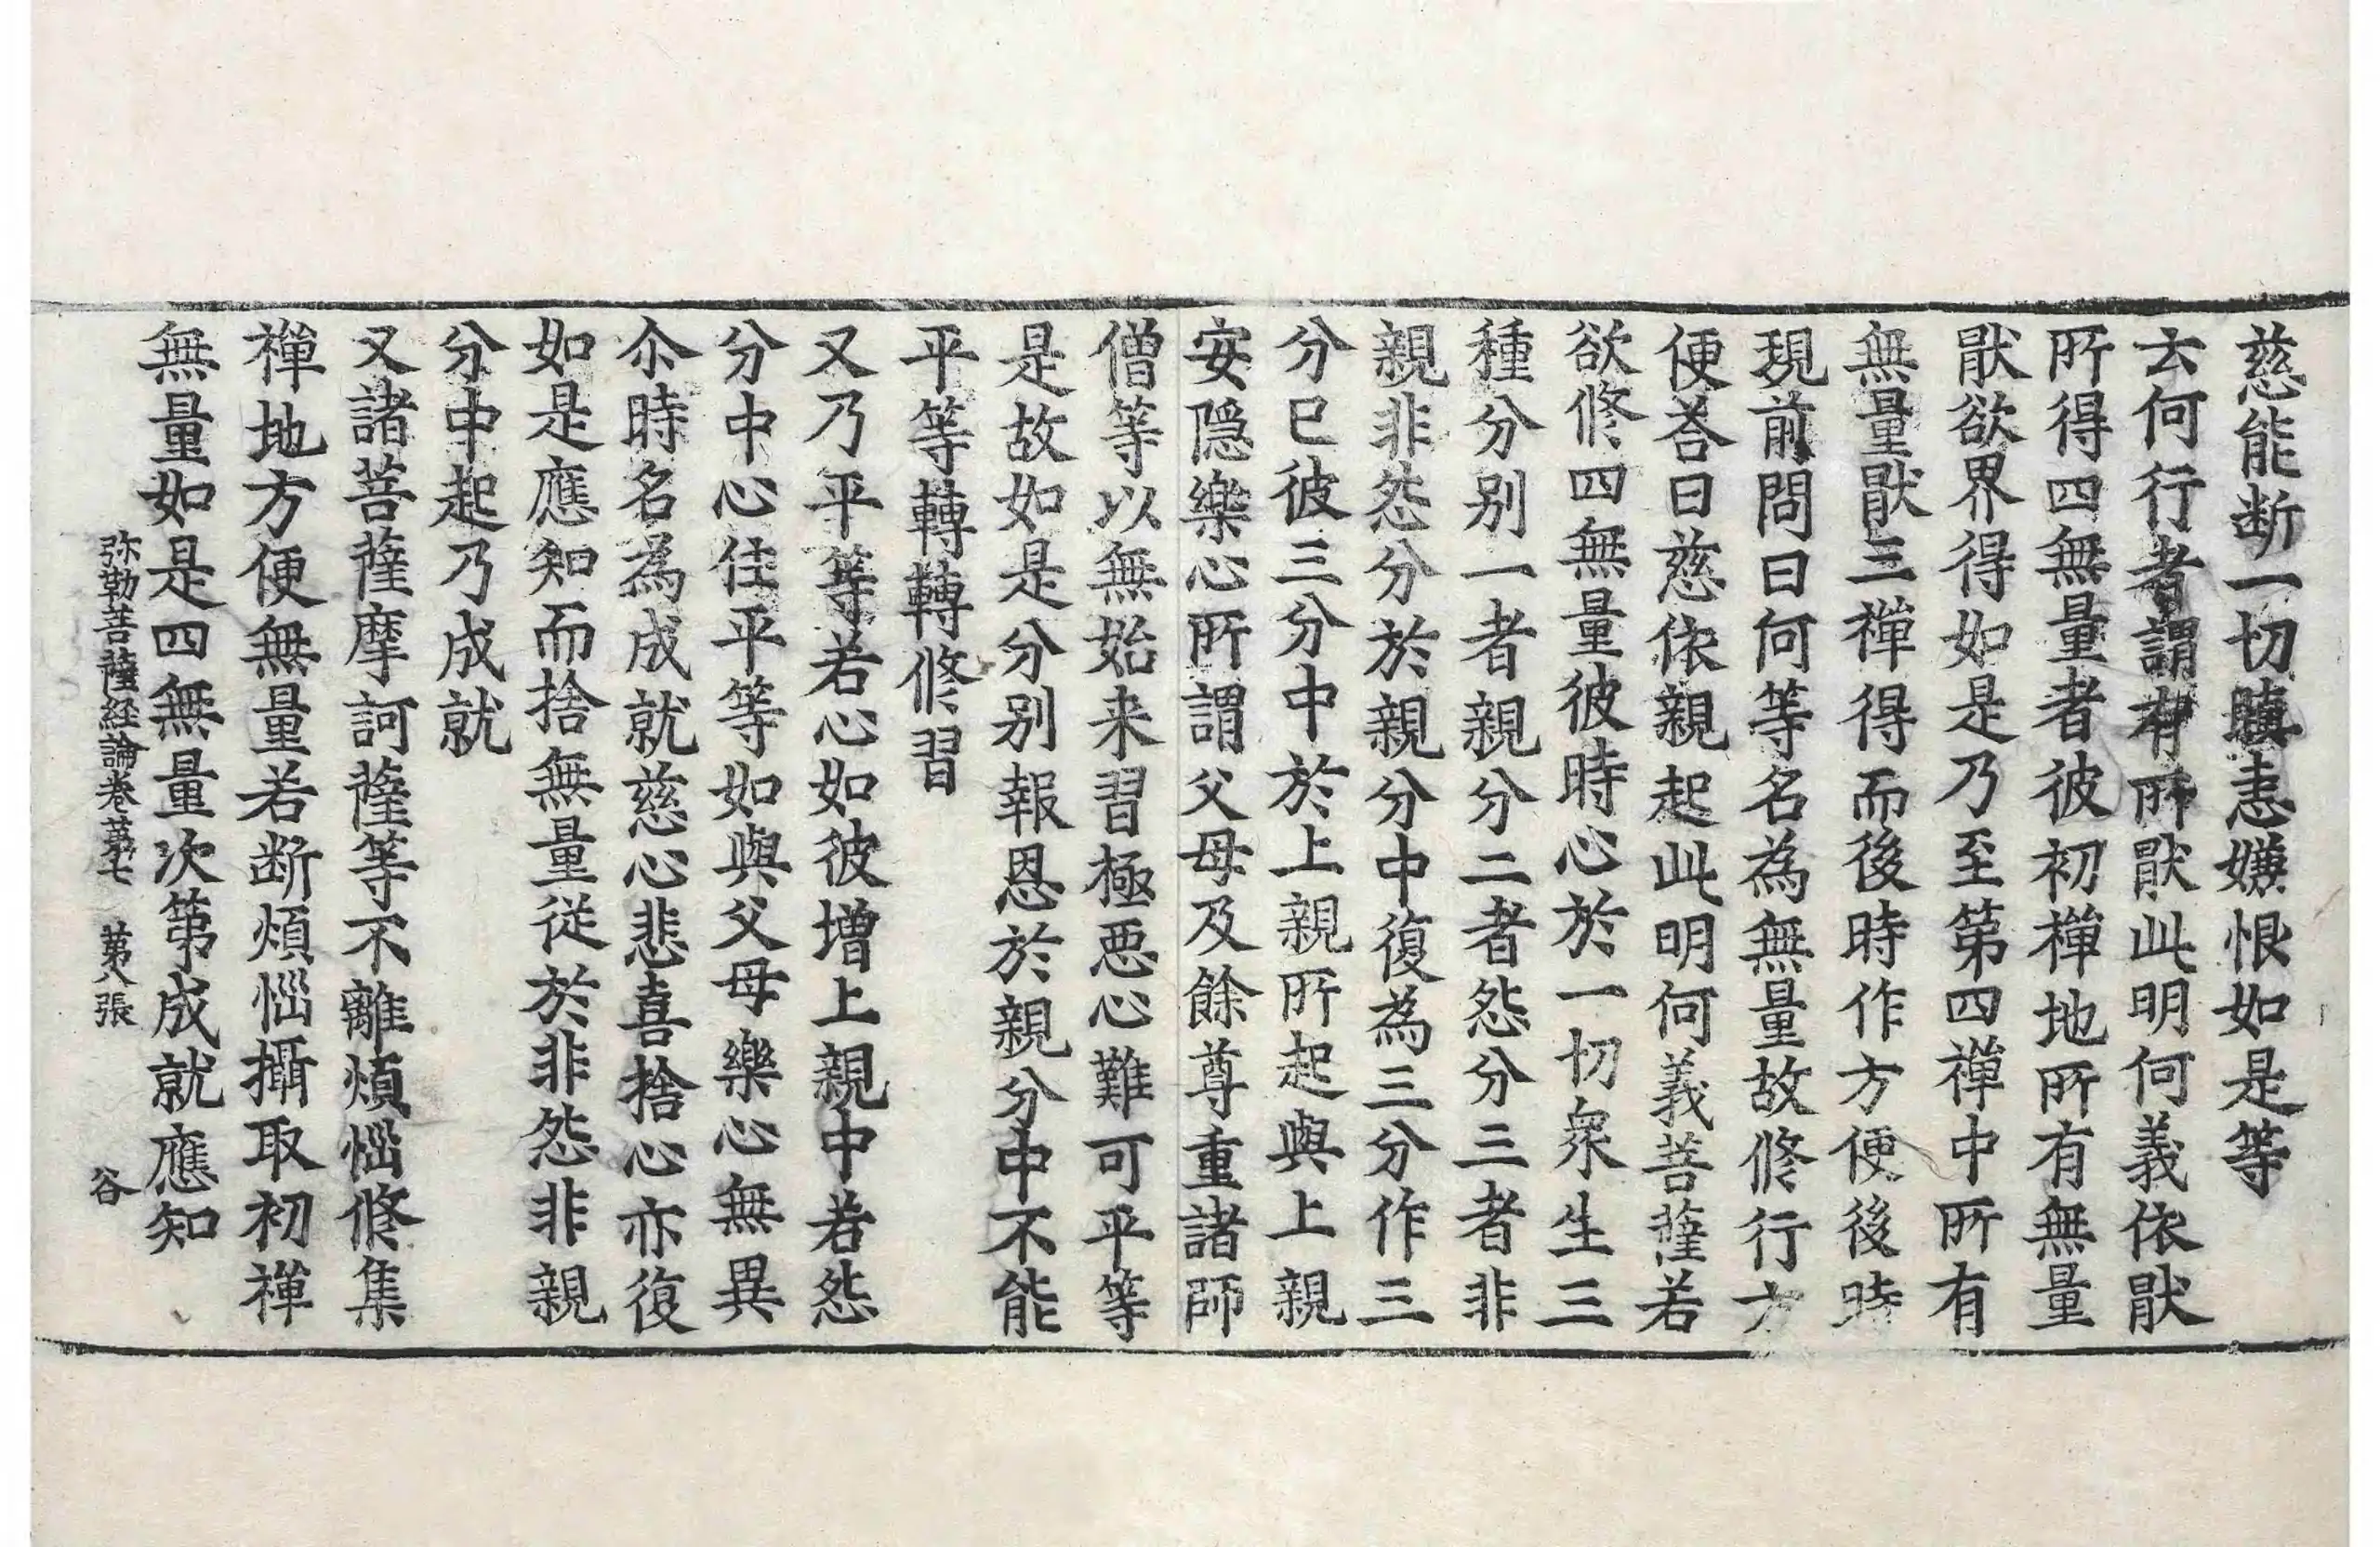 慈能断一切瞋恚嫌恨如是等
去何行者謂有所猒此明何義依猒
所得四無量者彼初禪地所有無量
猒欲界得如是乃至第四禪中所有
無量猒三禪得而後時作方便後時
現前問曰何等名為無量故修行方
便荅曰慈依親起此明何義菩薩若
欲修四無量彼時心於一切衆生三
種分别一者親分二者怨分三者非
親非怨分於親分中復為三分作三
分已彼三分中於上親所起與上親
安隠樂心所謂父母及餘尊重諸師
僧等以無始来習極惡心難可平等
是故如是分别報恩於親分中不能
平等轉轉修習
又乃平等若心如彼增上親中若怨
分中心住平等如與父母樂心無異
尒時名為成就慈心悲喜捨心亦復
如是應知而捨無量從於非怨非親
分中起乃成就
又諸菩薩摩訶薩等不離煩惱修集
禪地方便無量若断煩惱攝取初禪
無量如是四無量次第成就應知
弥勒菩薩経論卷苐七 苐八張 谷